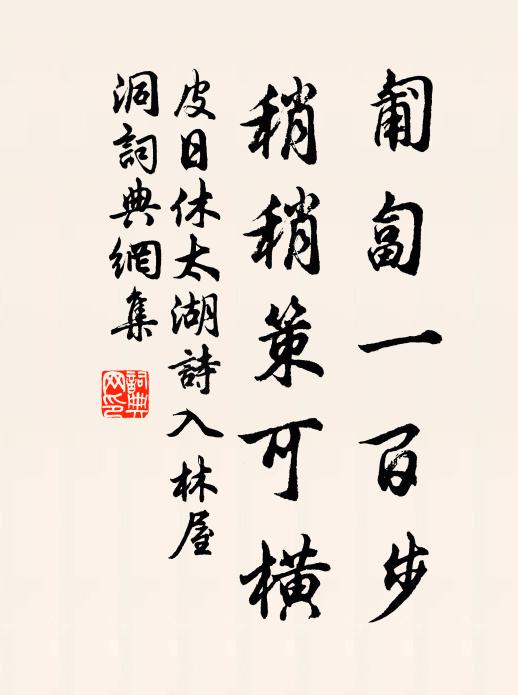 匍匐一百步
稍稍策可橫
皮日休太湖詩入林屋
洞詞典網集
詞典
网印